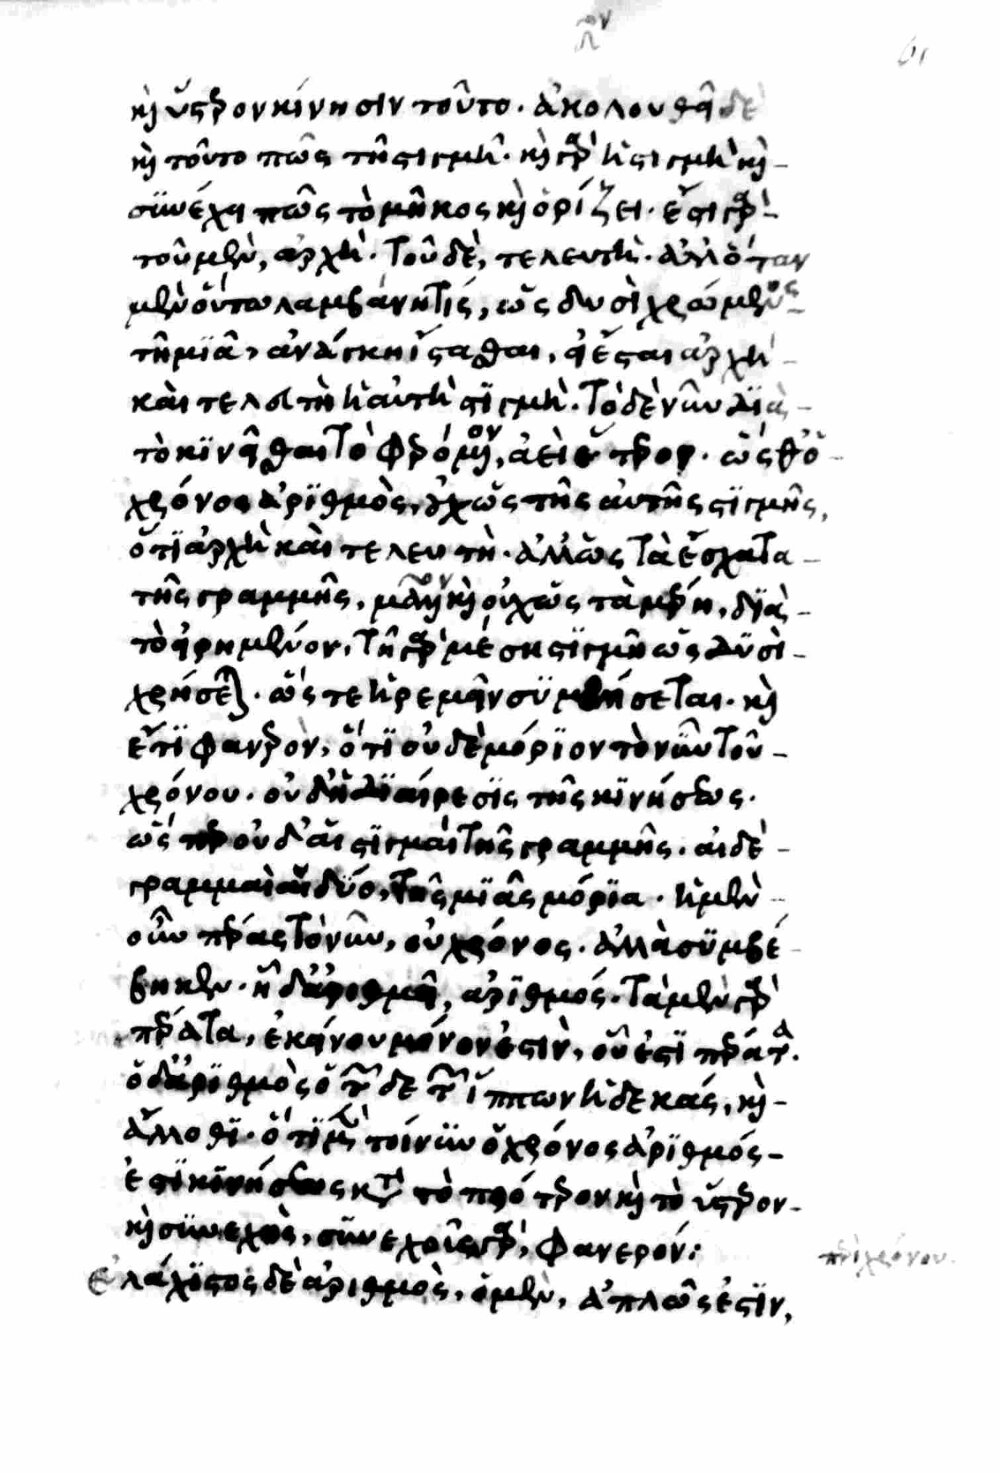 καὶ ὕστερον κίνησιν τοῦτο. ἀκολουθεῖ δὲ
καὶ τοῦτο πῶς τῆ στιγμῆ. καὶ γὰρ ἡ στιγμὴ καὶ
συνέχει πῶς τὸ μῆκος καὶ ὁρίζει. ἔστι γὰρ
τοῦ μὲν, ἀρχὴ. τοῦ δὲ, τελευτὴ. ἀλλ' ὅταν
μὲν οὕτω λαμβάνη τίς, ὡς δυσὶ χρώμενος
τῆ μιᾶ, ἀνάγκη ἵστασθαι, εἰ ἔσται ἀρχὴ
καὶ τελευτὴ ἡ αὐτὴ στιγμὴ. τὸ δὲ νῦν διὰ
τὸ κινεῖσθαι τὸ φερόμενον, ἀεὶ ἕτερον. ὥσθ' ὁ
χρόνος ἀριθμὸς, οὐχ ὡς τῆς αὐτῆς στιγμῆς,
ὅτι ἀρχὴ καὶ τελευτὴ. ἀλλ' ὡς τὰ ἔσχατα
τῆς γραμμῆς, μᾶλλον καὶ οὐχ ὡς τὰ μέρη, διὰ
τὸ εἰρημένον, τῆ γὰρ μέση στιγμῆ ὡς δυσὶ
χρήσεται. ὥστε ἠρεμεῖν συμβήσεται. καὶ
ἔτι φανερὸν, ὅτι οὐδὲ μόριον τὸ νῦν τοῦ
χρόνου. οὐδ' ἡ διαίρεσις τῆς κινήσεως.
ὥσπερ οὐδ' αἱ στιγμαὶ τῆς γραμμῆς. αἱ δὲ
γραμμαὶ αἱ δύο, τῆς μιᾶς μόρια. ἡ μὲν
οὖν πέρας τὸ νῦν, οὐ χρόνος. ἀλλὰ συμβέ
βηκεν. ἡ δ' ἀριθμεῖ, ἀριθμός. τὰ μὲν γὰρ
πέρατα, ἐκείνου μόνον ἐστὶν, οὗ ἐστὶ πέρατα.
ὁ δ' ἀριθμὸς ὁ τῶνδε τῶν ἵππων ἡ δεκάς, καὶ
ἄλλοθι. ὅτι μὲν τοίνυν ὁ χρόνος ἀριθμός
ἐστι κινήσεως κατὰ τὸ πρότερον καὶ τὸ ὕστερον
καὶ συνεχὴς, συνεχοῦς γὰρ, φανερόν:
ἐλάχιστος δὲ ἀριθμὸς, ὁ μὲν, ἁπλῶς ἐστὶν,
περὶ χρόνου.